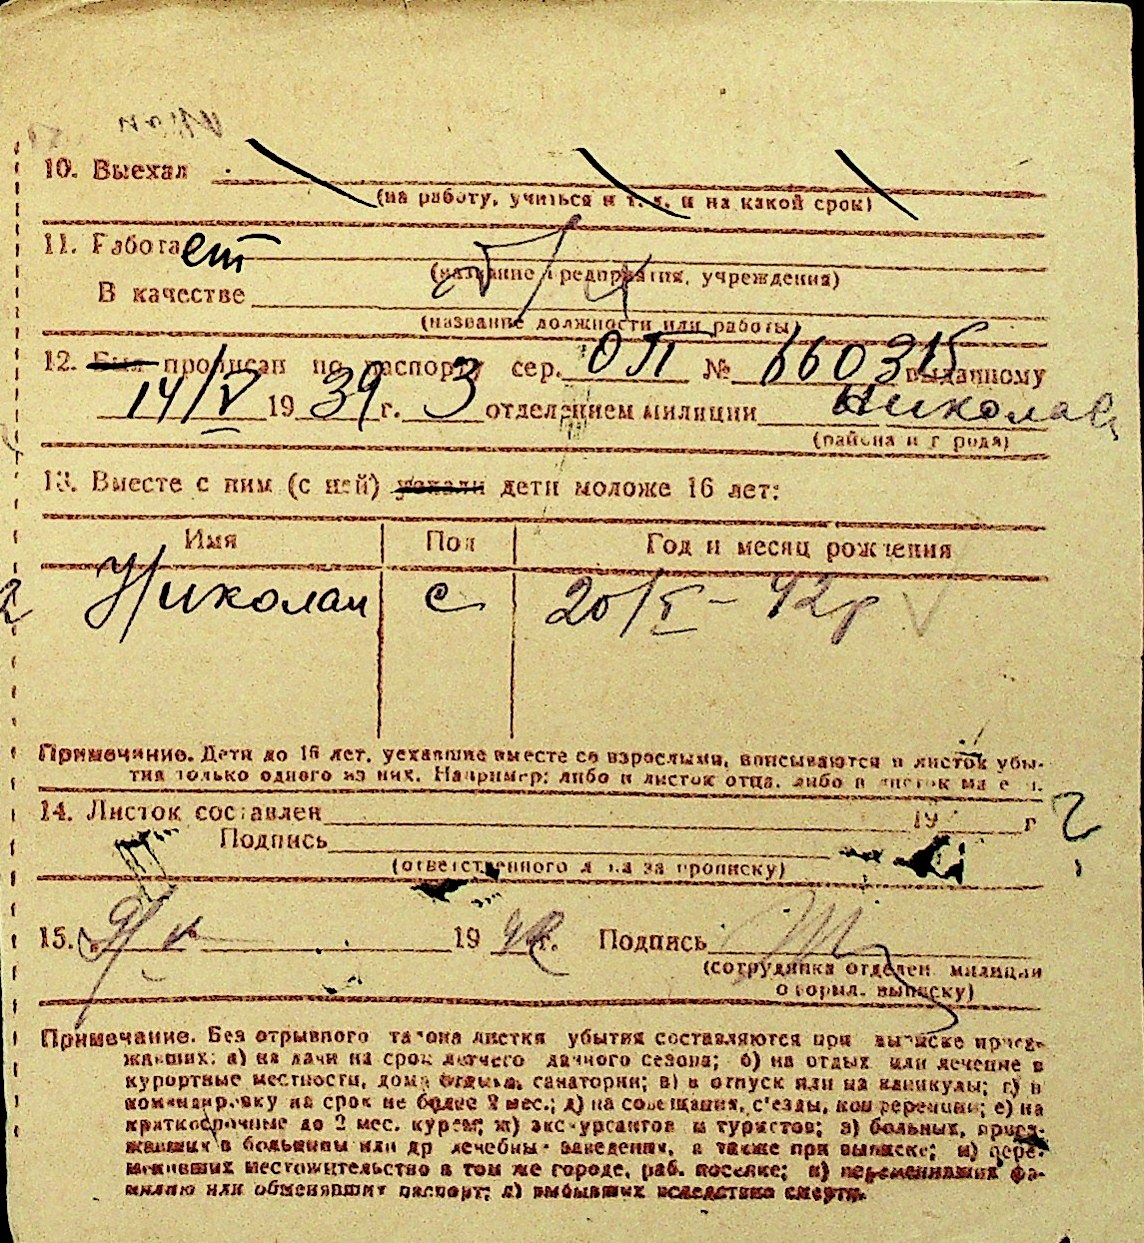 10. Выехал
(на работу, учиться и т. д. и на какой срок)
11. Работает
(название предприятия, учреждения)
В качестве
(название должности или работы)
12. Был прописан по паспорту сер. ОП № 660315 выданному
14/V 1939 г. 3 отделением милиции Николаев
(района и города)
13. Вместе с ним (с ней) уехали дети моложе 16 лет:
Имя Пол Год и месяц рождения
Николай с 20/V - 42 г
Примечание. Дети до 16 лет, уехавшие вместе со взрослыми, вписываются в листок убы-
тия только одного из них. Например: либо в листок отца, либо в листок матери.
14. Листок составлен 19 г
Подпись
(ответственного лица за прописку)
15. 1942 г. Подпись
(сотрудника отделен. милиции
оформл. выписку)
Примечание. Без отрывного талона листки убытия составляются при выписке приез-
жавших: а) на дачи на срок летнего дачного сезона; б) на отдых или лечение в
курортные местности, дома отдыха, санатории; в) в отпуск или на каникулы; г) в
командировку на срок не более 2 мес.; д) на совещания, с'езды, конференции; е) на
краткосрочные до 2 мес. курсы; ж) экскурсантов и туристов; з) больных, приез-
жавших в больницы или др лечебны заведения, а также при выписке; и) пере-
менивших местожительство в том же городе, раб. поселке; к) переменивших фа-
милию или обменявших паспорт; л) выбывших вследствие смерти.